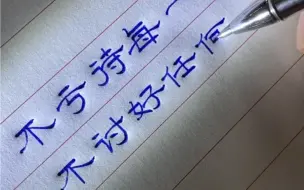 不亏待每一
不讨好任何